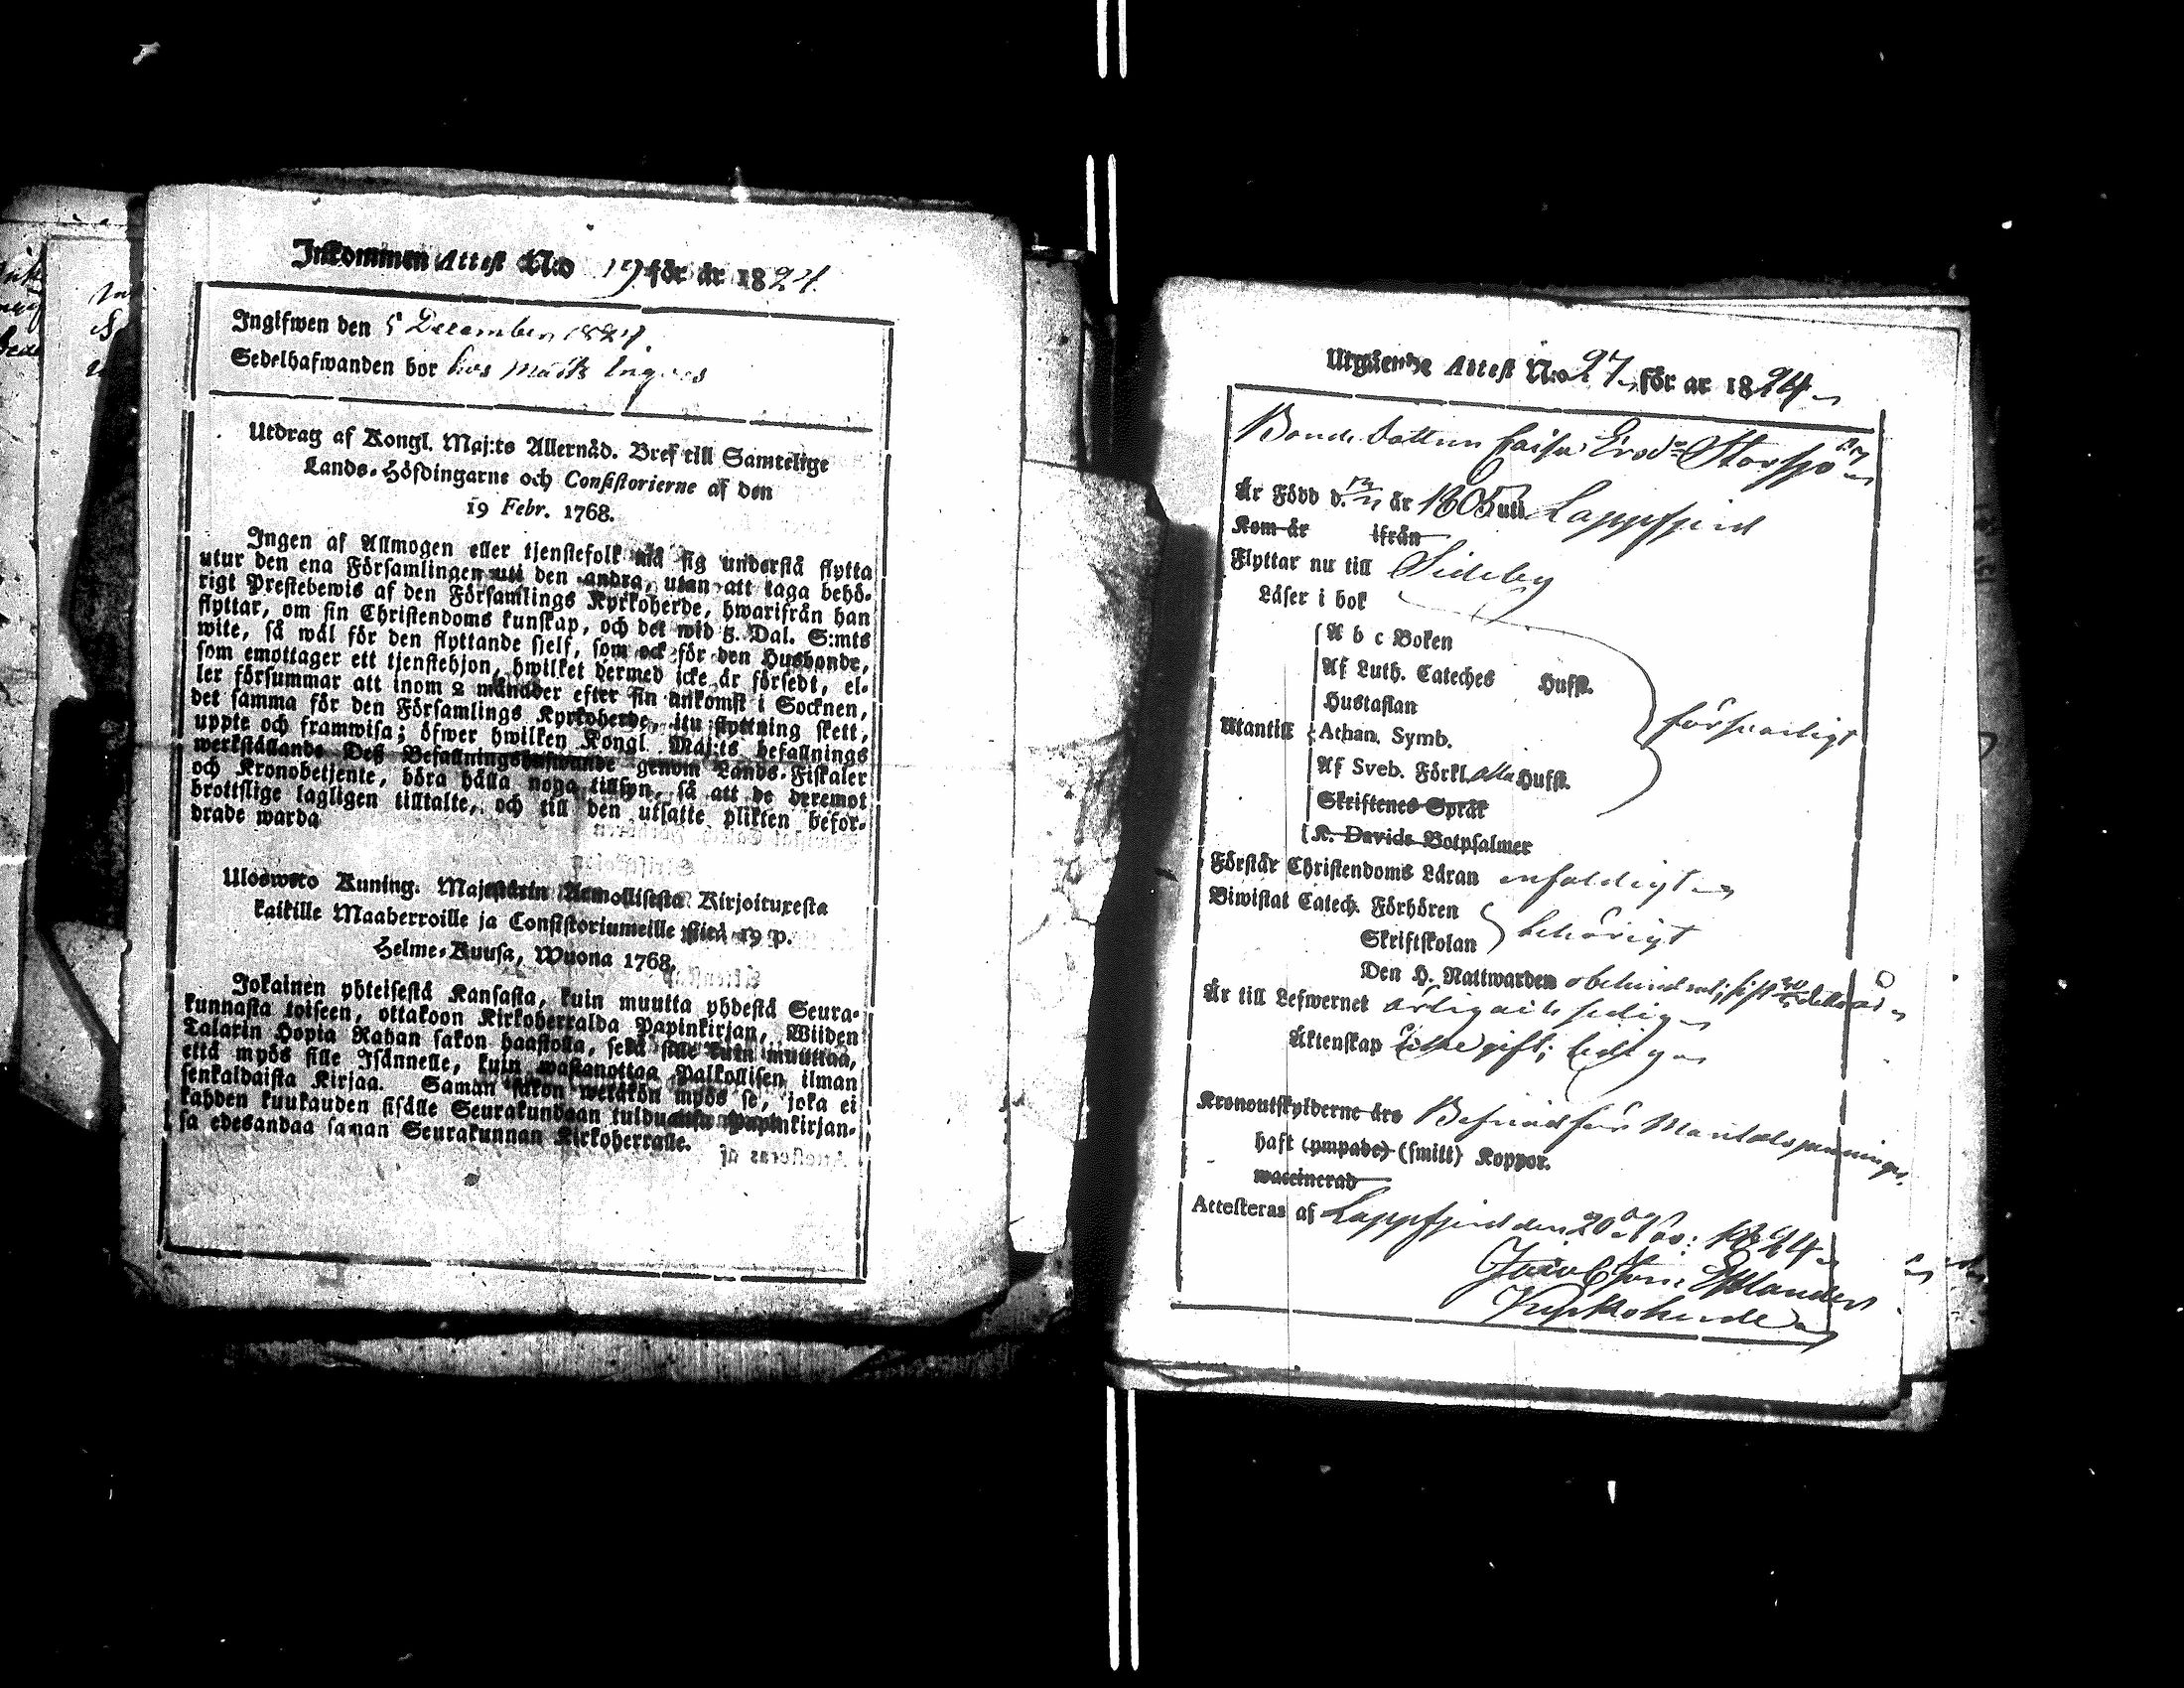 Inkommen Attest N:o 19 för år 1824.
Ingifwen den 5 December 1824.
Sedelhafwanden bor hos Matts Ingves
Utdrag af Kongl. Maj:ts Allernåd. Bref till Samtelige
Lands-Höfdingarne och Consistorierne af den
19 Febr. 1768.
Ingen af Allmogen eller tjenstefolk må sig understå flytta
utur den ena Församlingen uti den andra, utan att taga behö-
rigt Prestebewis af den Församlings Kyrkoherde, hwarifrån han
flyttar, om sin Christendoms kunskap, och det wid 5. Dal. S:mts
wite, så wäl för den flyttande sielf, som ock för den Husbonde,
som emottager ett tjenstehjon, hwilket dermed icke är försedt, el-
ler försummar att inom 2 månader efter sin ankomst i Socknen,
det samma för den Församlings Kyrkoherde, itu flyttning skett,
uppte och framwisa; öfwer hwilken Kongl. Maj:ts befallnings
werkställande Deß Befallningshafwande genom Lands-Fiskaler
och Kronobetjente, böra hålla noga tillsyn, så att de deremot
brottslige lagligen tilltalte, och till den utsatte plikten befor-
drade warda
Ulosweto Kuning. Majestätin Armollisesta Kirjoituxesta
kaikille Maaherroille ja Consistoriumeille siea 19 p.
Helme-Kuusa, Wuona 1768.
Jokainen yhteisestä Kansasta, kuin muutta yhdestä Seura-
kunnasta toiseen, ottakoon Kirkoherralda Papinkirjan, Wiiden
Talarin Hopia Rahan sakon haastolla, sekä sille kuin muuttaa,
että myös sille Isännelle, kuin wastanottaa Palkollisen ilman
senkaldaista Kirjaa. Saman sakon wetäkön myös se, joka ei
kahden kuukauden sisälle Seurakundaan tulduansa Papinkirjan-
sa edesandaa saman Seurakunnan Kirkoherralle.
Utgående Attest N:o 27 för år 1824
Bonde dottern Caisa Ersd:r Storsjö
Är Född d. 12/11 år 1805 uti Lappfjerd
Kom år ifrån
Flyttar nu till Sideby
Läser i bok
A b c Boken
Af Luth. Cateches Hufst.
Hustaflan
Utantill Athan. Symb. försvarligt
Af Sveb. Förkl. alla Hufst.
Skriftenes Språk
K. Davids Botpsalmer
Förstår Christendoms Läran enfaldigt
Biwistat Catech. Förhören
Skriftskolan behörigt
Den H. Nattwarden obehindrad; sist
Är till Lefwernet ärlig och sedig
Äktenskap icke gift; ledig
Kronoutskylderne års Befriad från Mantalspenningar.
haft (ympade) (smitt) Koppor.
waccinerad
Attesteras af Lappfjerd den 20 Nov: 1824
Jacob Jon: Estlander
Kyrkoherde